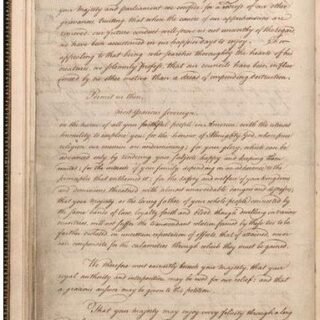 your Majesty and parliament we confide, for a redress of our other
grievances trusting that when the causes of our apprehensions are
removed, our future conduct will prove us not unworthy of the regard
we have been accustomed in our happier days to enjoy. For
appealing to that being who searches thoroughly the hearts of his
creatures we solemnly profess, that our councils have been influ
enced by no other motive than a dread of impending destruction.
Permit us then,
most Gracious Sovereign,
in the name of all your faithful people in America, with the utmost
humility to implore you, for the honour of Almighty God, whose pure
religion our enemies are undermining; for your glory, which can be
advanced only by rendering your subjects happy and keeping them
united; for the interest of your family depending on an adherence to the
principles that enthroned it; for the safety and welfare of your kingdoms
and dominions threatned with almost unavoidable dangers and distresses;
that your majesty, as the loving father of your whole people, connected by
the same bands of law, loyalty, faith and blood, though dwelling in various
countries, will not suffer the transcendant relation formed by these ties to be
farther violated in uncertain expectation of effects, that, if attained, never
can compensate for the calamities through which they must be gained.
We therefore most earnestly beseech your majesty, that your
royal authority and interposition may be used for our relief; and that
a gracious answer may be given to this petition.
That your majesty may enjoy every felicity through a long